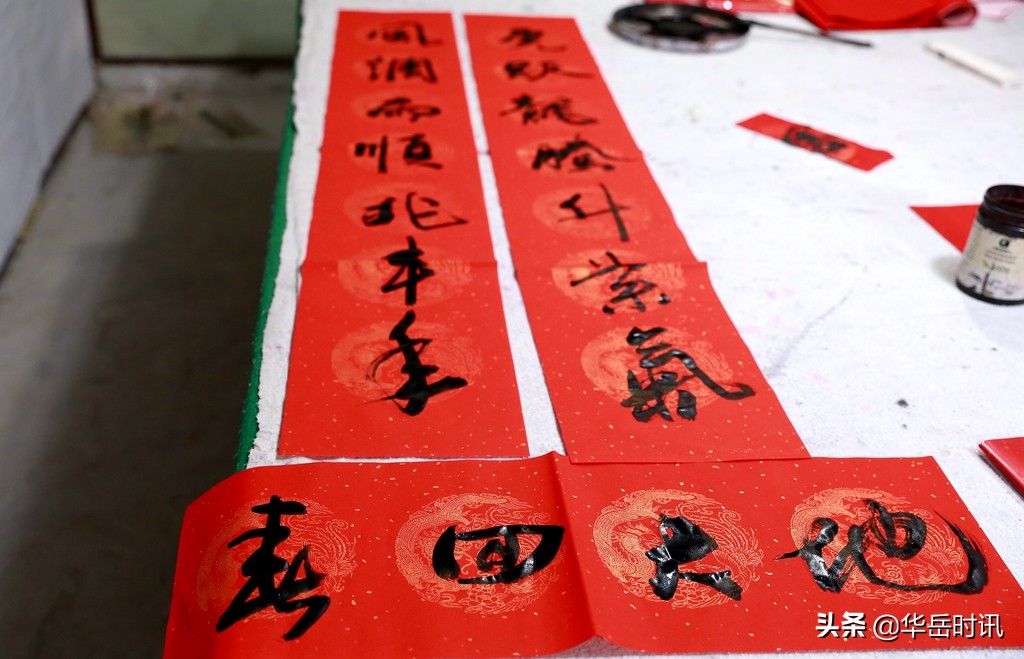 虎跃龍騰升紫氣
風調雨順兆丰年
春回大地
头条 @华岳时讯